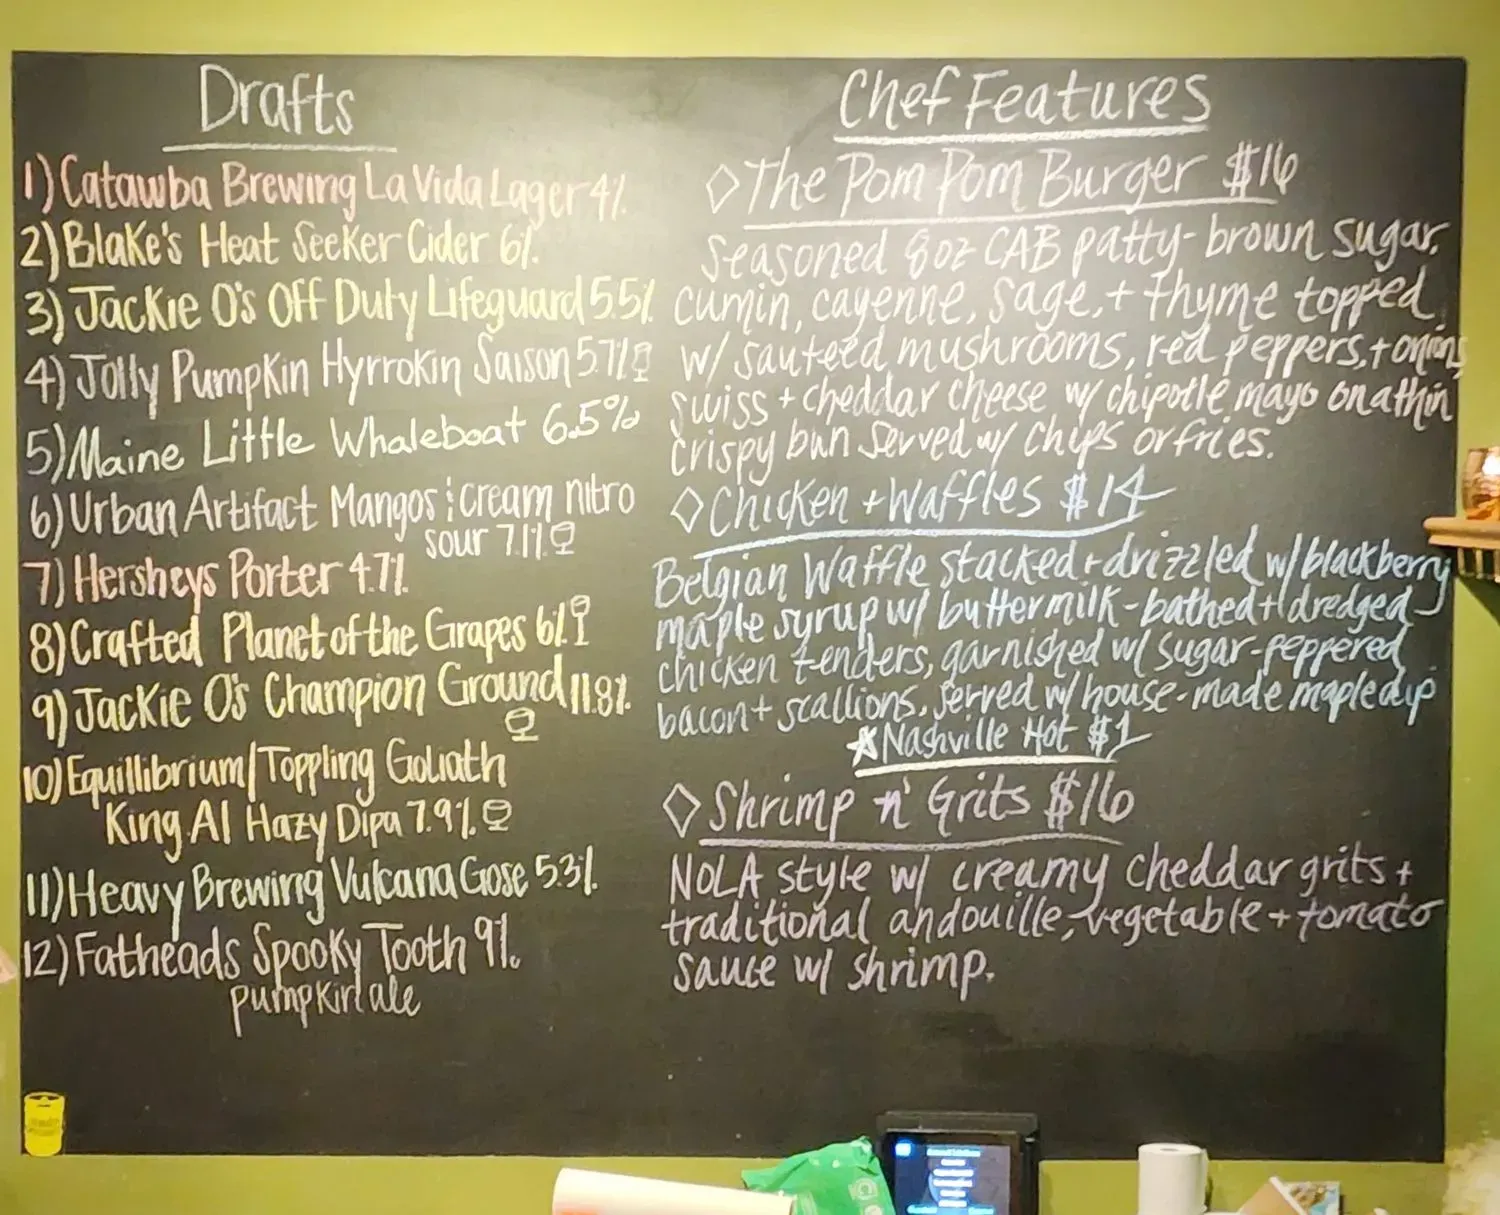 Drafts
1) Catawba Brewing La Vida Lager 4%
2) Blake's Heat Seeker Cider 6%
3) Jackie O's Off Duty Lifeguard 5.5%
4) Jolly Pumpkin Hyrrokin Saison 5.7%
5) Maine Little Whaleboat 6.5%
6) Urban Artifact Mangos; cream nitro
sour 7.1%
7) Hersheys Porter 4.7%
8) Crafted Planet of the Grapes 6%
9) Jackie O's Champion Ground 11.8%
10) Equillibrium/Toppling Goliath
King Al Hazy Dipa 7.9%
11) Heavy Brewing Vulcana Gose 5.3%
12) Fatheads Spooky Tooth 9%
pumpkin ale
Chef Features
◇ The Pom Pom Burger $16
Seasoned 8oz CAB patty - brown sugar,
cumin, cayenne, sage, + thyme topped
w/ sauteed mushrooms, red peppers, + onions,
swiss + cheddar cheese w/ chipotle mayo on a thin
crispy bun served w/ chips or fries.
◇ Chicken + Waffles $14
Belgian Waffle stacked + drizzled w/ blackberry
maple syrup w/ buttermilk-bathed + dredged
chicken tenders, garnished w/ sugar-peppered
bacon + scallions, served w/ house-made maple dip
☆ Nashville Hot $1
◇ Shrimp n' Grits $16
NOLA style w/ creamy cheddar grits +
traditional andouille, vegetable + tomato
sauce w/ shrimp.